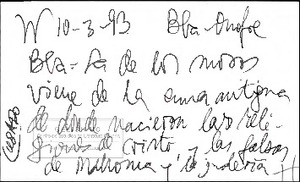 W 10-3-93 Bba-Onofre
Bba - La de los moros
viene de la rama antigua
de donde nacieron las reli-
giones de cristo y las falsas
de Mahoma y la judería